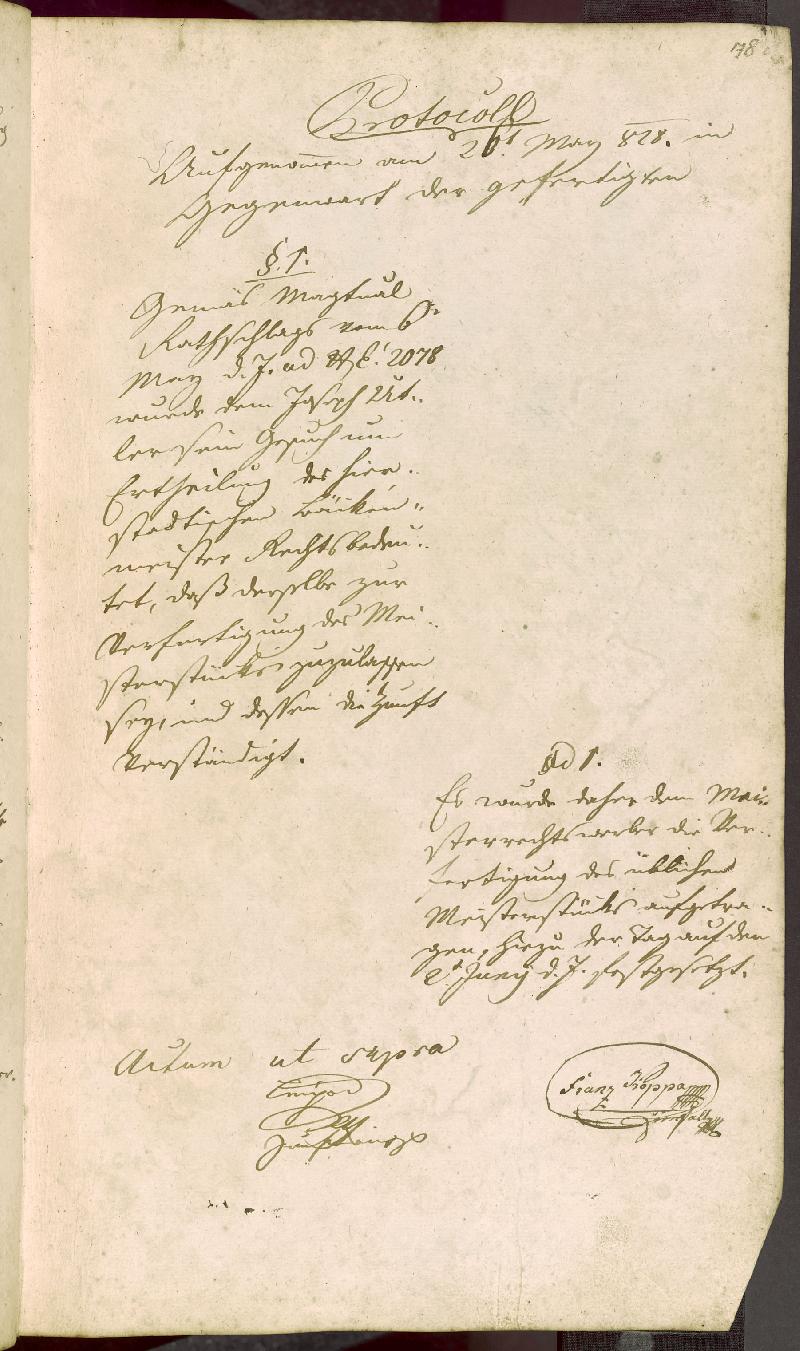 78
Protocoll
Aufgenom̄en am 26t. May 828. in
Gegenwart der gefertigten
§. 1.
Gemäs Magtual
Rathschlags vom 6t.
May d. J. ad 2078
wurde dem Joseph
ler sein Gesuch um
Ertheilung des hier„
städtischen Bäcken„
meister Rechts bedeu„
tet, daß derselbe zur
Verfertigung des Mei„
sterstücks zuzulassen
sey, und dessen die Zunft
verständigt.
ad 1.
Es wurde daher dem Mei„
sterrechtswerber die Ver„
fertigung des üblichen
Meisterstücks aufgetra„
gen, hiezu der Tag auf den
2t Juny d. J. festgesetzt.
Actum ut supra
Franz Koppa